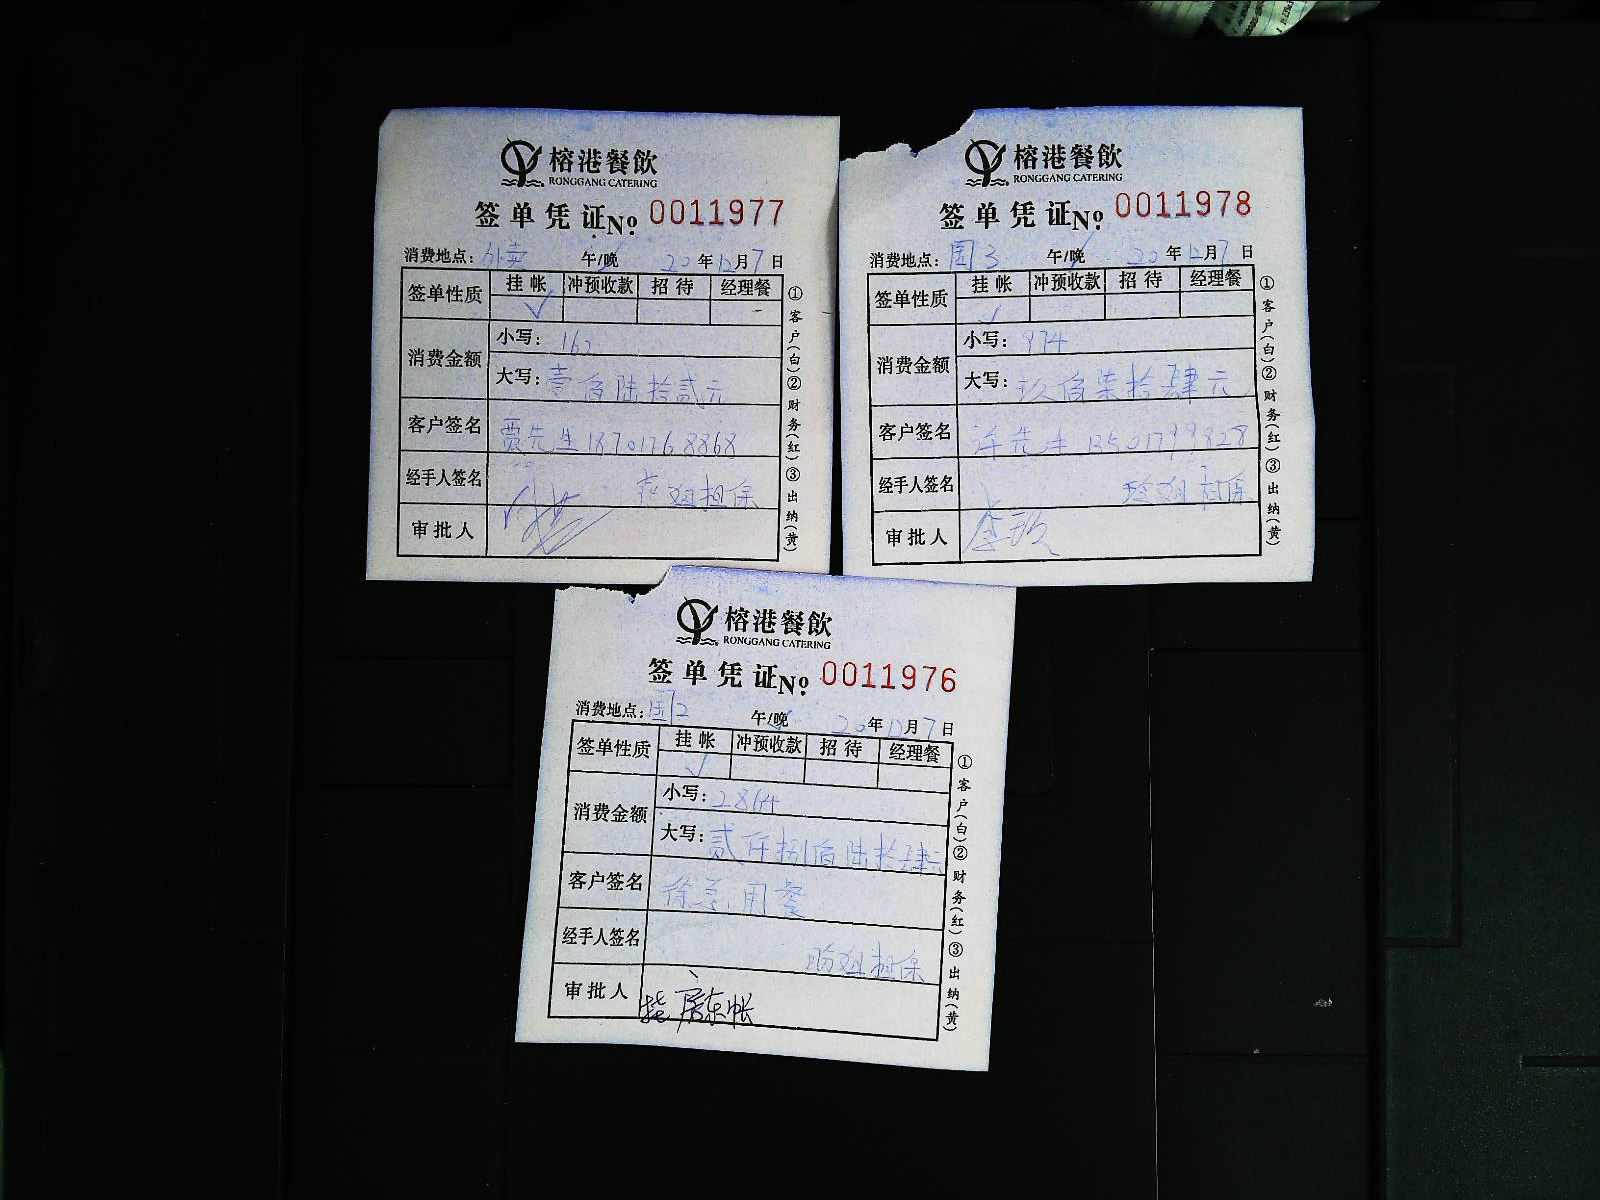 榕港餐飲
RONGGANG CATERING
签单凭证No: 0011977
消费地点: 外卖 午/晚 20年12月7日
签单性质 挂帐 冲预收款 招待 经理餐
√
消费金额
小写: 162
大写: 壹佰陆拾贰元
客户签名 贾先生 18701768868
经手人签名 姐担保
审批人
①客户(白)②财务(红)③出纳(黄)
榕港餐飲
RONGGANG CATERING
签单凭证No: 0011978
消费地点: 国3 午/晚 20年12月7日
签单性质 挂帐 冲预收款 招待 经理餐
√
消费金额
小写: 974
大写: 玖佰柒拾肆元
客户签名 先生 13501799828
经手人签名 姐担保
审批人
①客户(白)②财务(红)③出纳(黄)
榕港餐飲
RONGGANG CATERING
签单凭证No: 0011976
消费地点: 国2 午/晚 20年12月7日
签单性质 挂帐 冲预收款 招待 经理餐
√
消费金额
小写: 2864
大写: 贰仟捌佰陆拾肆元
客户签名 徐总用餐
经手人签名 姐担保
审批人 挂房东帐
①客户(白)②财务(红)③出纳(黄)